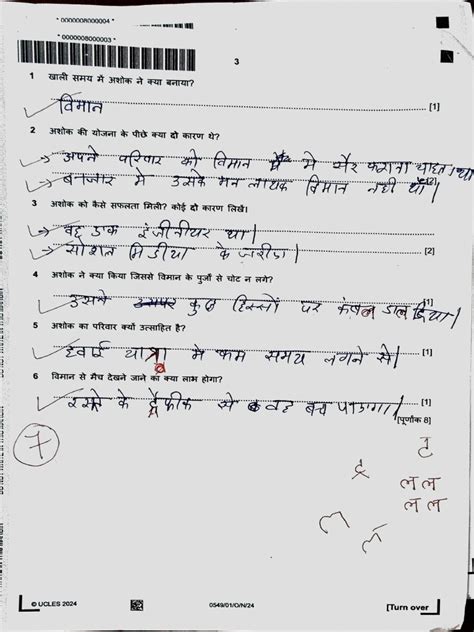 * 0000008000004 *
* 0000008000003 *
3
1 खाली समय में अशोक ने क्या बनाया?
विमान
[1]
2 अशोक की योजना के पीछे क्या दो कारण थे?
अपने परिवार को विमान मे सैर कराना चाहता था
बनजार मे उसके मन लायक विमान नही था।
[2]
3 अशोक को कैसे सफलता मिली? कोई दो कारण लिखें।
वह एक इंजीनीयर था।
सोशल मिडीया के जरीए।
[2]
4 अशोक ने क्या किया जिससे विमान के पुर्जों से चोट न लगे?
उसने कुछ हिस्सों पर कंबल डाल दिया।
[1]
5 अशोक का परिवार क्यों उत्साहित है?
हवाई यात्रा मे कम समय लगने से।
[1]
6 विमान से मैच देखने जाने का क्या लाभ होगा?
के ट्रैफीक से वह बच पाएगा।
[1]
[पूर्णांक 8]
7
ट
द्र
ल ल
ल ल
ल
ल
© UCLES 2024
0549/01/O/N/24
[Turn over